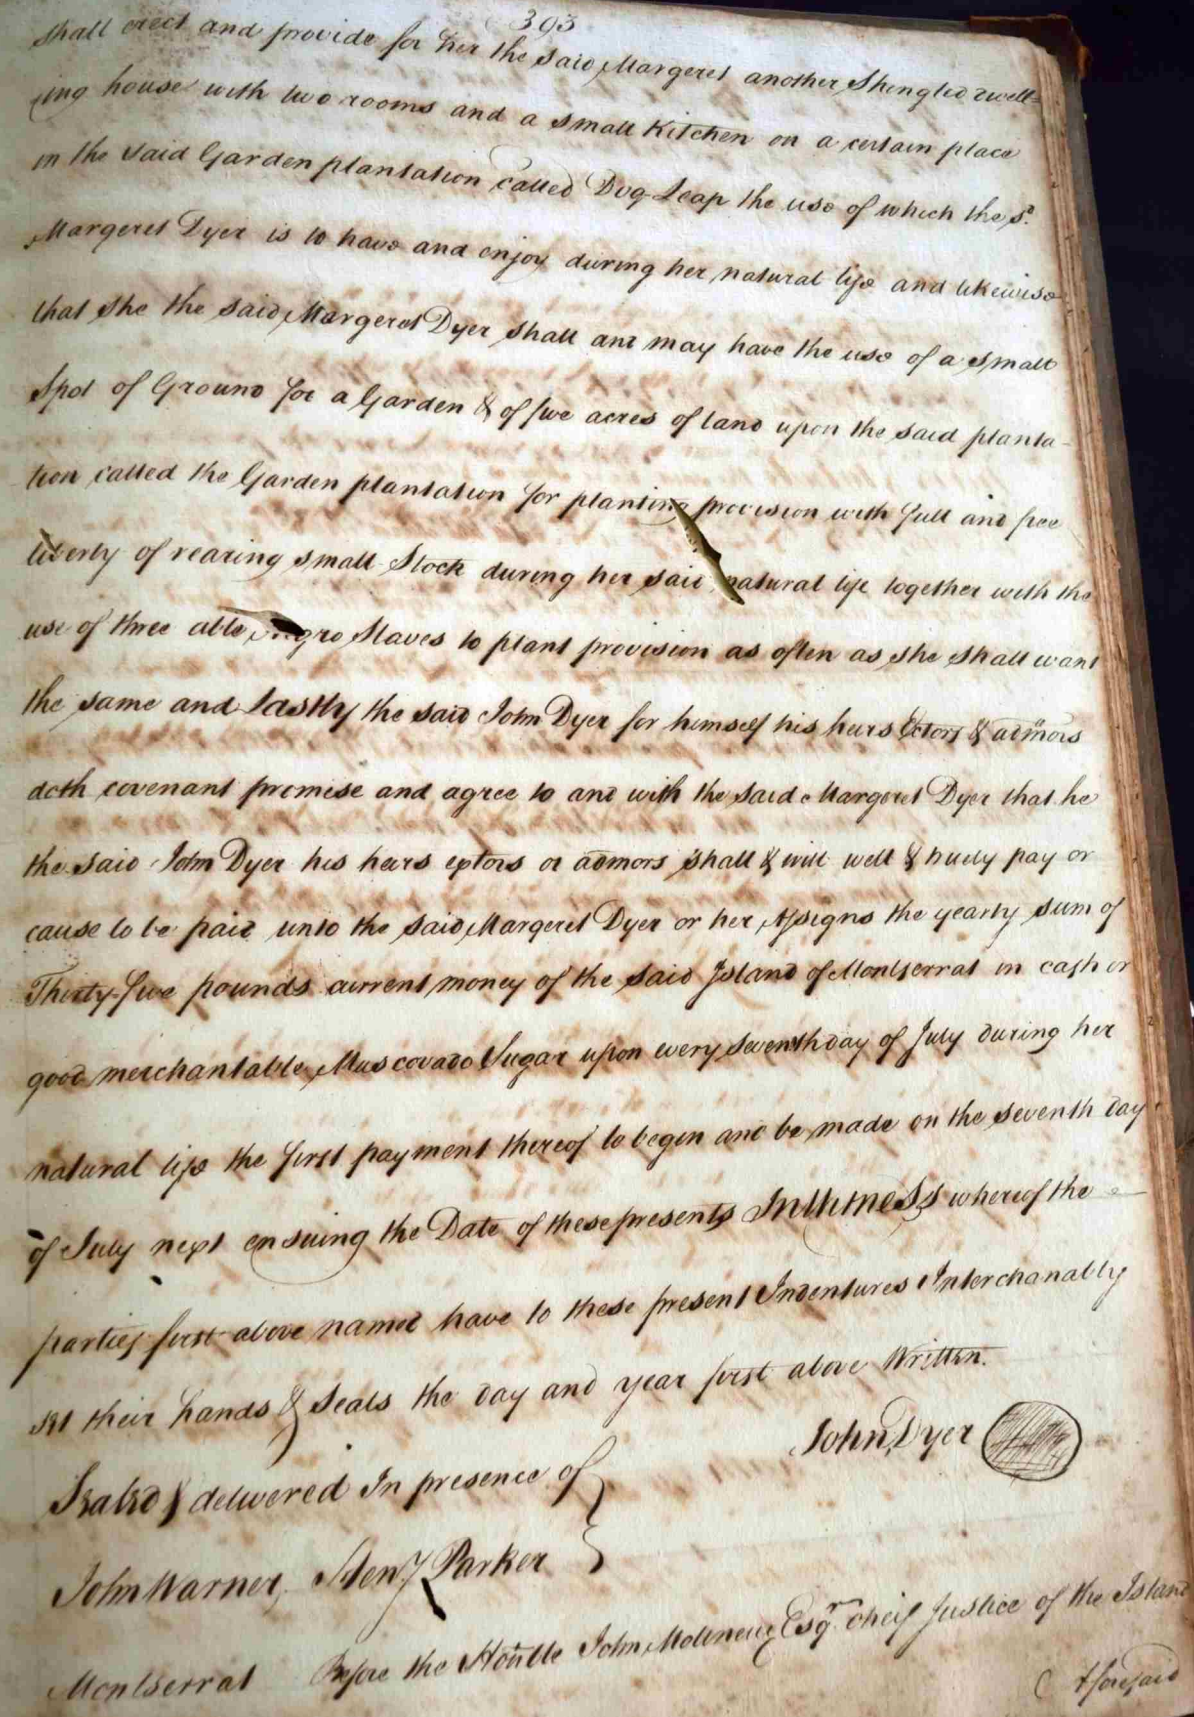 393
shall erect and provide for her the said Margeret another Shingled dwell=
ing house with two rooms and a small Kitchen on a certain place
in the said Garden plantation called Dog-Leap the use of which the sd.
Margeret Dyer is to have and enjoy during her natural life and likewise
that she the said Margeret Dyer shall and may have the use of a small
Spot of Ground for a Garden & of five acres of land upon the said planta-
tion called the Garden plantation for planting provision with full and free
liberty of rearing small Stock during her said natural life together with the
use of three able Negro Slaves to plant provision as often as she shall want
the same and Lastly the said John Dyer for himself his heirs Extors & admors
doth covenant promise and agree to and with the said Margeret Dyer that he
the said John Dyer his heirs extors or admors shall & will well & truly pay or
cause to be paid unto the said Margeret Dyer or her Assigns the yearly sum of
Thirty-five pounds current money of the said Island of Montserrat in cash or
good merchantable Muscovado Sugar upon every seventh day of July during her
natural life the first payment thereof to begin and be made on the seventh day
of July next ensuing the Date of these presents In Witness whereof the
parties first above named have to these present Indentures Interchanably
set their hands & Seals the day and year first above Written.
John Dyer
Sealed & delivered In presence of
John Warner, Heny Parker
Montserrat Before the Honble John Molineux Esqr. cheif Justice of the Island
Aforesaid